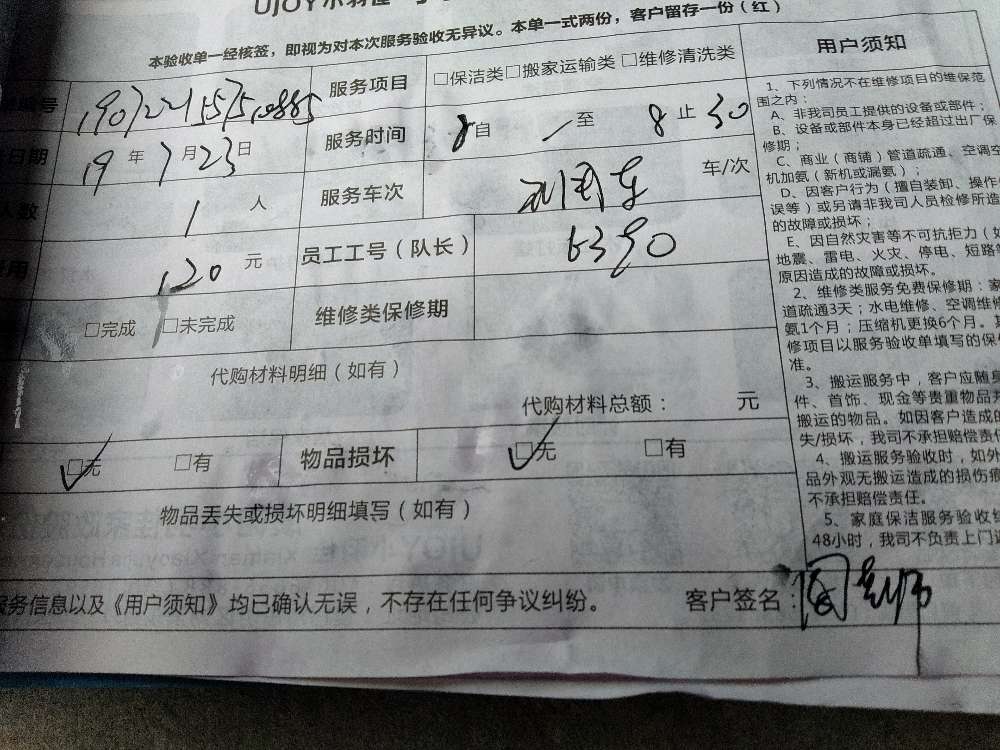 UJOY小羽佳
本验收单一经核签，即视为对本次服务验收无异议。本单一式两份，客户留存一份（红）
服务项目 □保洁类□搬家运输类 □维修清洗类
日期 19 年 7 月 23 日 服务时间 8 自 至 8 止 30
人数 1 人 服务车次 车/次
120 元 员工工号（队长） 6390
□完成 □未完成 维修类保修期
代购材料明细（如有）
代购材料总额： 元
□无 □有 物品损坏 □无 □有
物品丢失或损坏明细填写（如有）
服务信息以及《用户须知》均已确认无误，不存在任何争议纠纷。 客户签名：
用户须知
1、下列情况不在维修项目的维保范
围之内：
A、非我司员工提供的设备或部件；
B、设备或部件本身已经超过出厂保
修期；
C、商业（商铺）管道疏通、空调空
机加氨（新机或漏氨）；
D、因客户行为（擅自装卸、操作
误等）或另请非我司人员检修所造
的故障或损坏；
E、因自然灾害等不可抗拒力（如
地震、雷电、火灾、停电、短路
原因造成的故障或损坏。
2、维修类服务免费保修期：家
道疏通3天；水电维修、空调维修
氨1个月；压缩机更换6个月。其
修项目以服务验收单填写的保
准。
3、搬运服务中，客户应随身
件、首饰、现金等贵重物品
搬运的物品。如因客户造成的
失/损坏，我司不承担赔偿责任
4、搬运服务验收时，如外
品外观无搬运造成的损伤痕
不承担赔偿责任。
5、家庭保洁服务验收
48小时，我司不负责上门